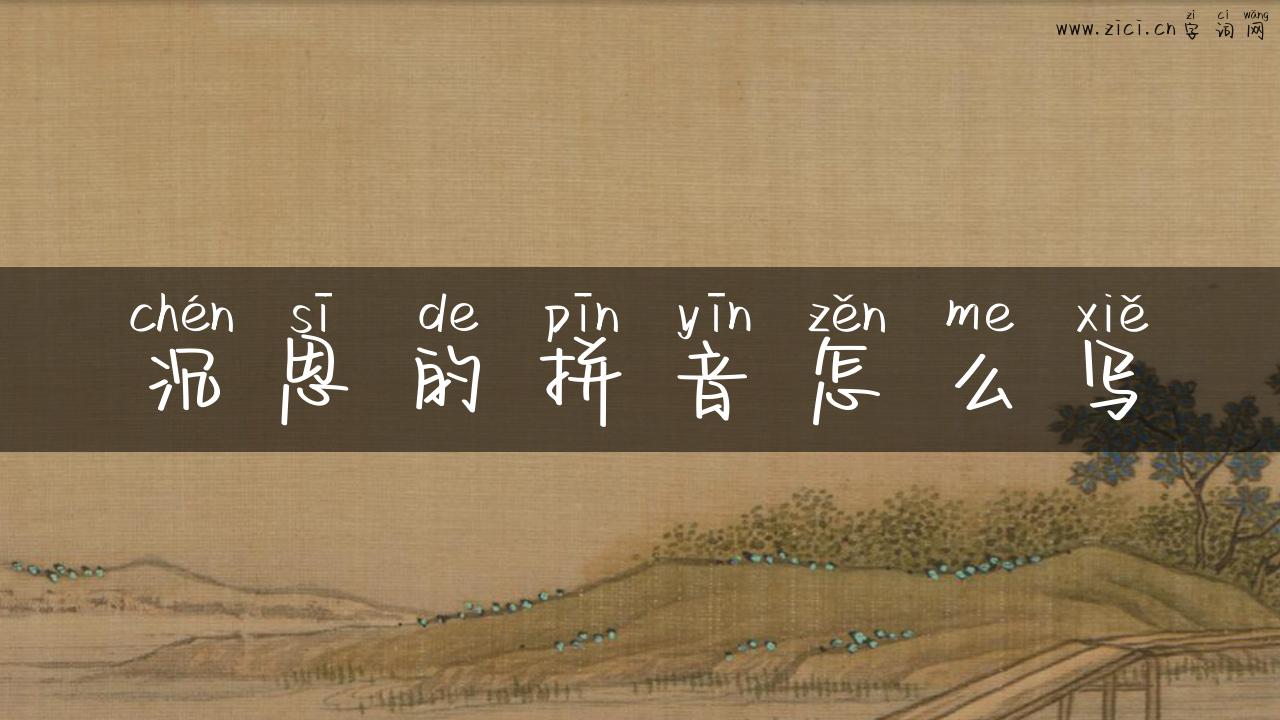 zì cí wǎng
www.zici.cn 字 词 网
chén sī de pīn yīn zěn me xiě
沉 思 的 拼 音 怎 么 写